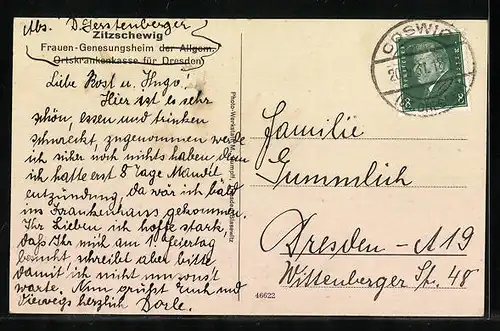 Abs. D. Gerstenberger
Zitzschewig
Frauen-Genesungsheim der Allgem.
Ortskrankenkasse für Dresden
Liebe Rost u. Hugo!
Hier ist es sehr
schön, essen und trinken
schmeckt, zugenommen werde
ich sicher noch nichts haben, denn
ich hatte erst 8 Tage Mandel
entzündung, da wär ich bald
ins Krankenhaus gekommen.
Ihr Lieben ich hoffe stark,
daß Ihr mich am 1 feiertag
besucht, schreibt aber bitte
damit ich nicht umsonst
warte. Nun grüßt Euch und
herzlich Dorle.
COSWIG
Familie
Gummlich
Dresden-A19
Wittenberger St. 48
46622